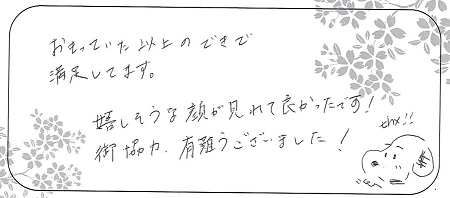 おもっていた以上のできで
満足してます。
嬉しそうな顔が見れて良かったです!
御協力、有難うございました!
thx!!